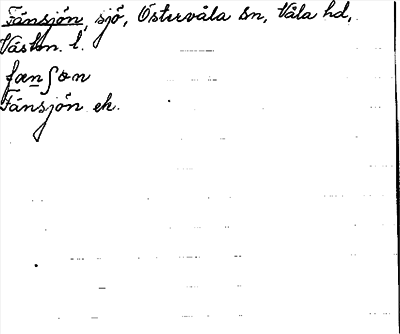 Fänsjön, sjö, Östervåla sn, Våla hd,
Västm. l.
fænʃøn
Fänsjön ek.